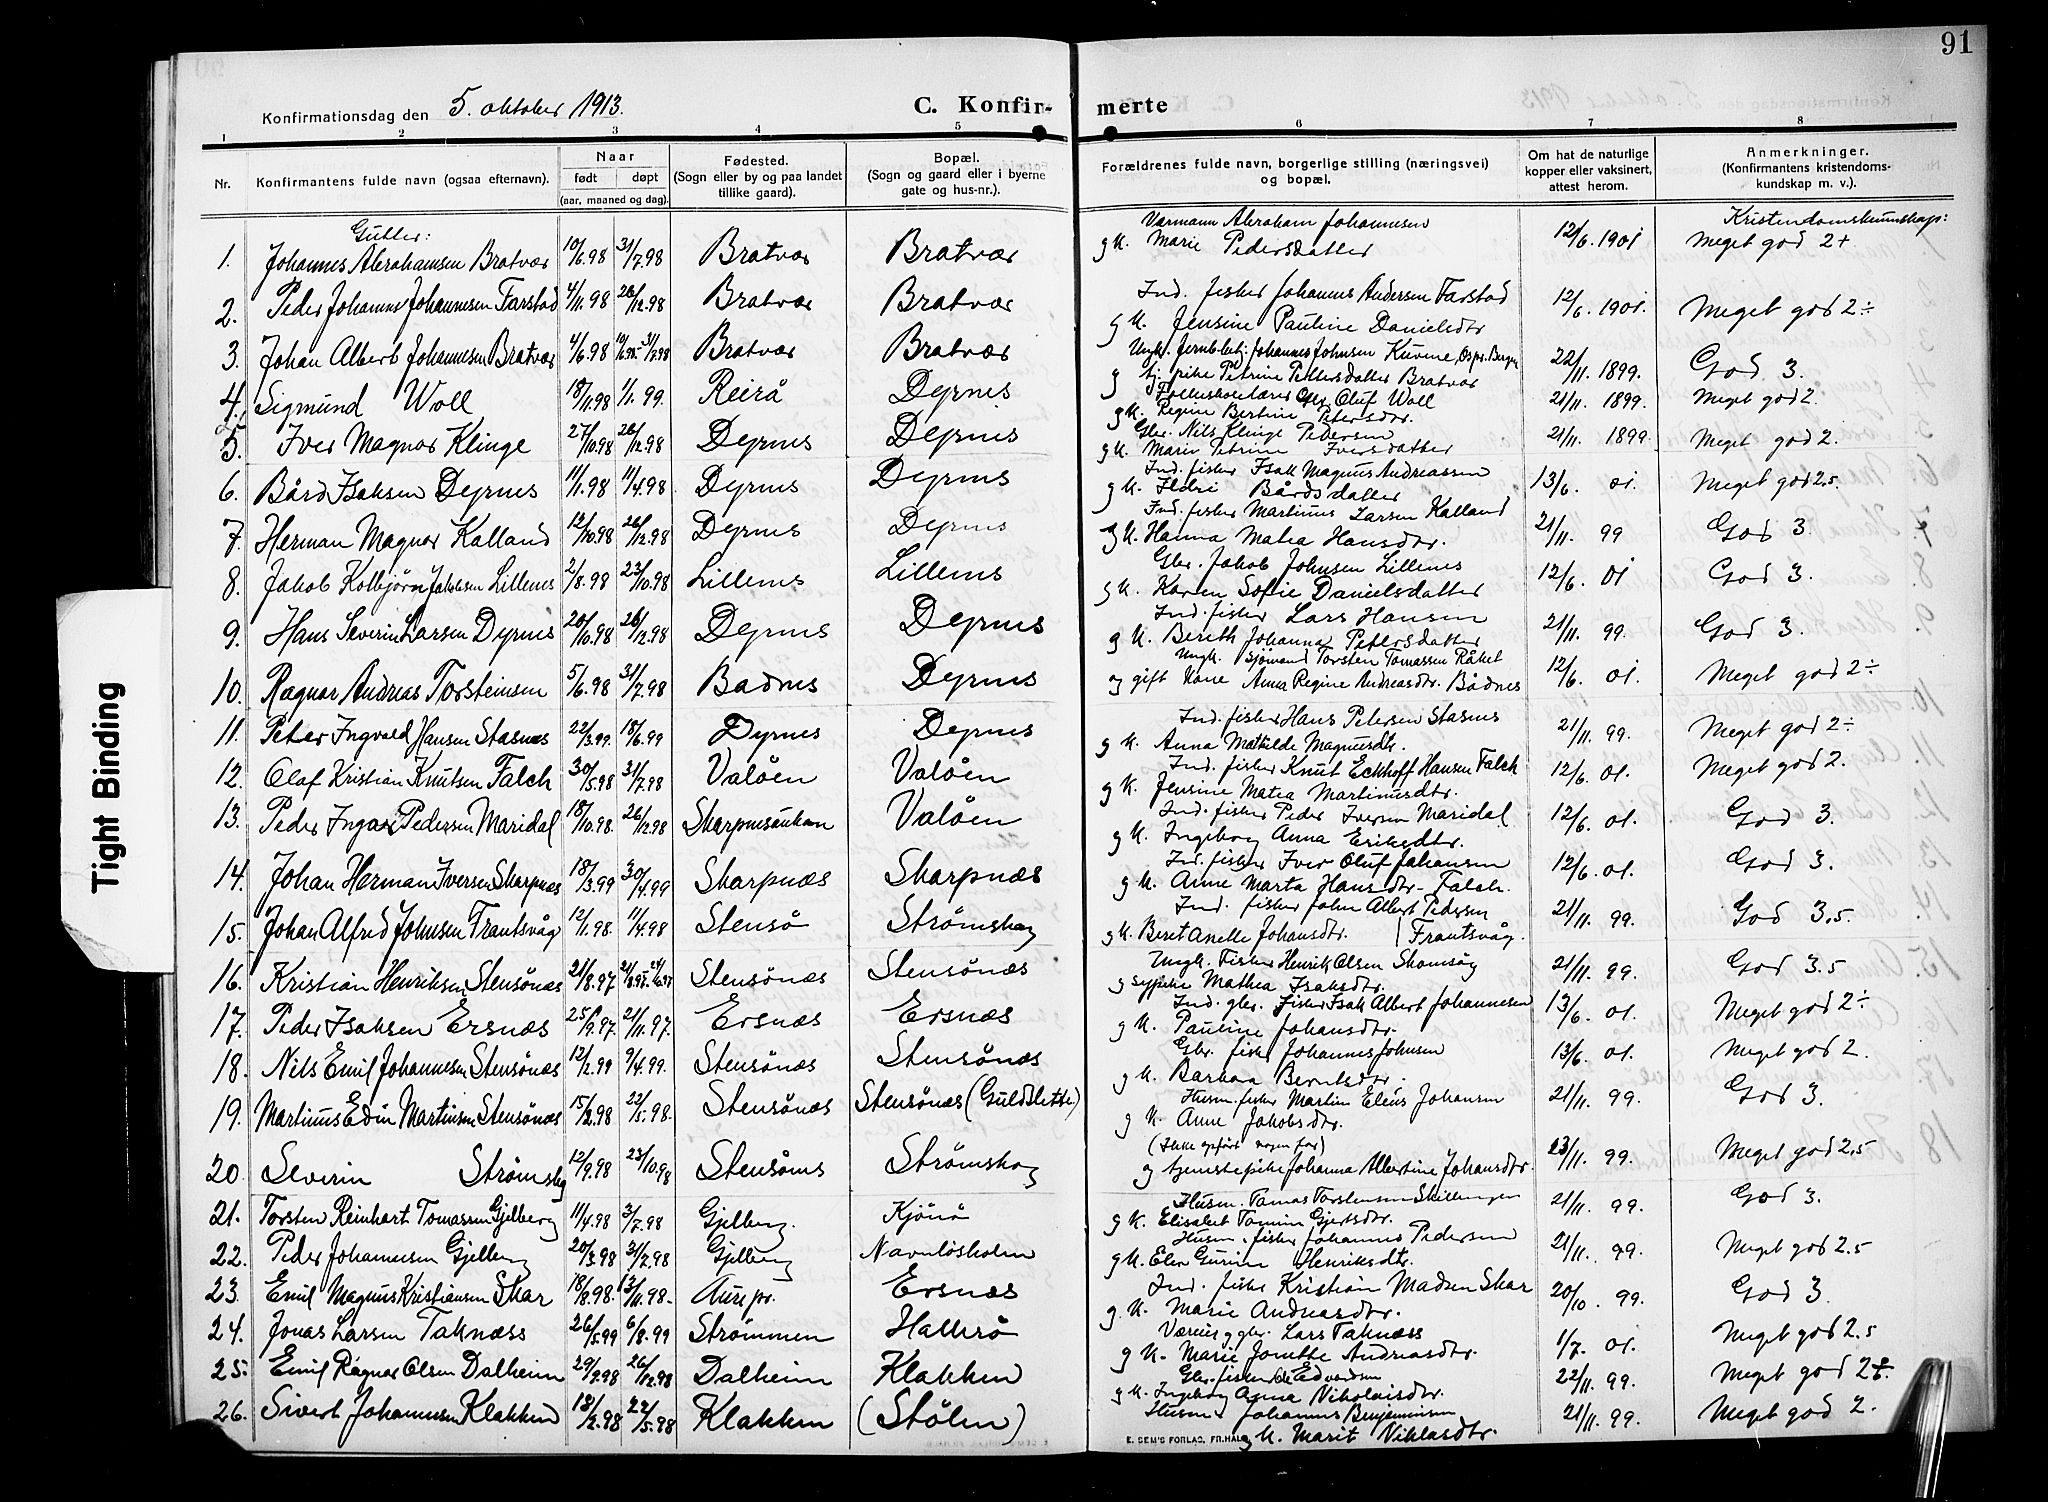 91
Konfirmationsdag den 5. oktober 1913.
C. Konfir-
merte
1 2 3 4 5 6 7 8
Nr.
Konfirmantens fulde navn (ogsaa efternavn).
Naar
født døpt
(aar, maaned og dag).
Fødested.
(Sogn eller by og paa landet
tillike gaard).
Bopæl.
(Sogn og gaard eller i byerne
gate og hus-nr.).
Forældrenes fulde navn, borgerlige stilling (næringsvei)
og bopæl.
Om hat de naturlige
kopper eller vaksinert,
attest herom.
Anmerkninger.
(Konfirmantens kristendoms-
kundskap m. v.).
Gutter:
Kristendomskunnskap:
Varmann Abraham Johannesen
1. Johannes Abrahamsen Bratvær 10/6.98 31/7.98 Bratvær Bratvær g K. Marie Pedersdatter 12/6.1901 Meget god 2+
Ind. fisker Johannes Andersen Farstad
2. Peder Johannes Johannesen Farstad 4/11.98 26/12.98 Bratvær Bratvær g K. Jensine Pauline Danielsdtr 12/6.1901. Meget god 2÷
Ungk. Johannes Johnsen Kuvine
3. Johan Albert Johannesen Bratvær 4/6.98 31/7.98 Bratvær Bratvær g tj. pike Petrine Pettersdatter Bratvær 22/11.1899. God 3.
Oluf Woll
4. Sigmund Woll 18/11.98 1/1.99. Reirå Dyrnes g K. Regine Bertine Petersdtr. 21/11.1899. Meget god 2.
Gbr. Nils Klinge Pedersen
5. Iver Magnar Klinge 27/10.98 26/12.98 Dyrnes Dyrnes g K. Marie Petrine Iversdatter 21/11.1899 Meget god 2.
Ind. fisker Isak Magnus Andreassen
6. Bård Isaksen Dyrnes 11/1.98 11/4.98 Dyrnes Dyrnes g K. Ildri Bårdsdatter 13/6. 01. Meget god 2.5.
Ind. fisker Martinus Larsen Kalland
7. Herman Magnar Kalland 12/10.98 26/12.98 Dyrnes Dyrnes g K. Hanna Matea Hansdtr. 21/11. 99 God 3.
Gbr. Jakob Johnsen Lillenes
8. Jakob Kolbjørn Jakobsen Lillenes 2/8.98 23/10.98 Lillenes Lillenes g K. Karen Sofie Danielsdatter 12/6. 01 God 3.
Ind. fisker Lars Hansen
9. Hans Severin Larsen Dyrnes 20/10.98 26/12.98 Dyrnes Dyrnes g K. Bereth Johanna Petersdatter 21/11. 99. God 3.
Ungk. Sjömand Torsten Tomassen Råket
10. Ragnar Andreas Torsteinsen 5/6.98 31/7.98 Badnes Dyrnes og gift kone Anna Regine Andreasdtr. Bådnes 12/6. 01. Meget god 2÷
Ind. fisker Hans Petersen Stasnes
11. Peter Ingvald Hansen Stasnes 22/3.99. 18/6.99 Dyrnes Dyrnes g K. Anna Mathilde Magnusdtr. 21/11. 99. Meget god 2÷
Ind. fisker Knut Eckhoff Hansen Falch
12. Olaf Kristian Knutsen Falch 30/5.98 31/7.98 Valöen Valöen g K. Jensine Matea Martinusdtr. 12/6. 01. Meget god 2.
Ind. fisker Peder Iversen Maridal
13. Peder Ingar Pedersen Maridal 18/10.98. 26/12.98 Valöen g K. Ingeborg Anna Eriksdtr. 12/6. 01. God 3.
Ind. fisker Iver Oluf Johansen
14. Johan Herman Iversen Skarpnes 18/3.99 30/4.99 Skarpnæs Skarpnæs g K. Anne Marta Hansdtr. Falch. 12/6. 01. God 3.
Ind. fisker John Albert Pedersen
15. Johan Alfred Johnsen Frantsvåg 12/1.98. 11/4.98 Stensö Strømskag g K. Beret Anelle Johansdtr. Frantsvåg. 21/11. 99. God 3.5.
Ungk. Fisker Henrik Olsen Skomsøy
16. Kristian Henriksen Stensönæs 21/8.97 Stensönæs Stensönæs g sypike Mathea Isaksdtr. 21/11. 99. God 3.5
Ind. gbr. Fisker Isak Albert Johannesen
17. Peder Isaksen Ersnæs 25/9.97. 21/11.97. Ersnæs Ersnæs g K. Pauline Johansdtr. 13/6. 01. Meget god 2÷
Gbr. fisker Johannes Johnsen
18. Nils Emil Johannesen Stensönæs 12/2.99 9/4.99. Stensönæs Stensönæs g K. Barbara Berntsdtr. 13/6. 01. Meget god 2.
Husm. fisker Martin Eleus Johansen
19. Martinus Edin Martinsen Stensönæs 15/2.98 22/5.98. Stensönæs Stensönæs (Guldslette) g K. Anne Jakobsdtr. 21/11. 99. God 3.
(Ikke opført nogen far)
20. Severin Strømskag 12/9.98 23/10.98 Stensönes Strømskag og tjenestepike Johanna Albertine Johansdtr. 23/11. 99. Meget god 2.5
Husm. Tomas Torstensen Skillingen
21. Torsten Reinhart Tomassen Gjelberg 11/4.98 3/7.98 Gjelberg. Kjönö g K. Elisabet Tomine Gjertsdtr. 21/11. 99. God 3.
Husm. fisker Johannes Pedersen
22. Peder Johannesen Gjelberg 20/3.98 31/7.98 Gjelberg Navnlösholm g K. Elen Gurine Henriksdtr. 21/11. 99. Meget god 2.5
Ind. fisker Kristian Madsen Skar
23. Emil Magnus Kristiansen Skar 18/8.98. 13/11.98. Aure pr. Ersnæs g K. Marie Andreasdtr. 20/10. 99. God 3.
gbr. Lars Taknæss
24. Jonas Larsen Taknæss 26/5.99 6/8.99 Strömmen Halkrö g K. Marie Jonette Andreasdtr. 1/7. 01. Meget god 2.5
Gbr. fisker Ole Edvardsen
25. Emil Ragnar Olsen Dalheim 29/9.98 26/12.98 Dalheim Klakken g K. Ingeborg Anna Nikolaisdtr. 22/11. 99. Meget god 2÷.
Husm. Johannes Benjaminsen
26. Sivert Johannesen Klakken 18/2.98 22/5.98 Klakken (Stölen) g K. Marit Niklasdtr. 21/11. 99. Meget god 2.
E. SEM'S FORLAG, FR.HALD
Tight Binding